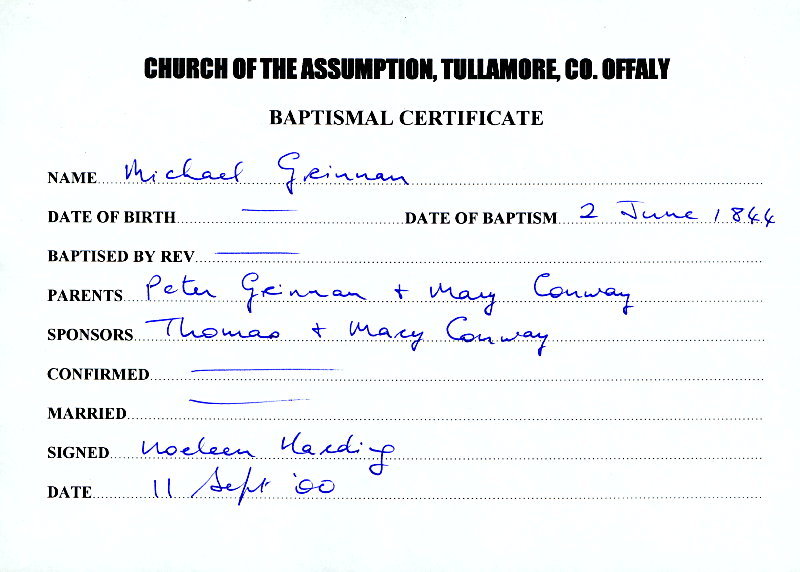 CHURCH OF THE ASSUMPTION, TULLAMORE, CO. OFFALY
BAPTISMAL CERTIFICATE
NAME Michael Grinnan
DATE OF BIRTH — DATE OF BAPTISM 2 June 1844
BAPTISED BY REV —
PARENTS Peter Grinnan + Mary Conway
SPONSORS Thomas + Mary Conway
CONFIRMED —
MARRIED —
SIGNED Noeleen Harding
DATE 11 Sept '00